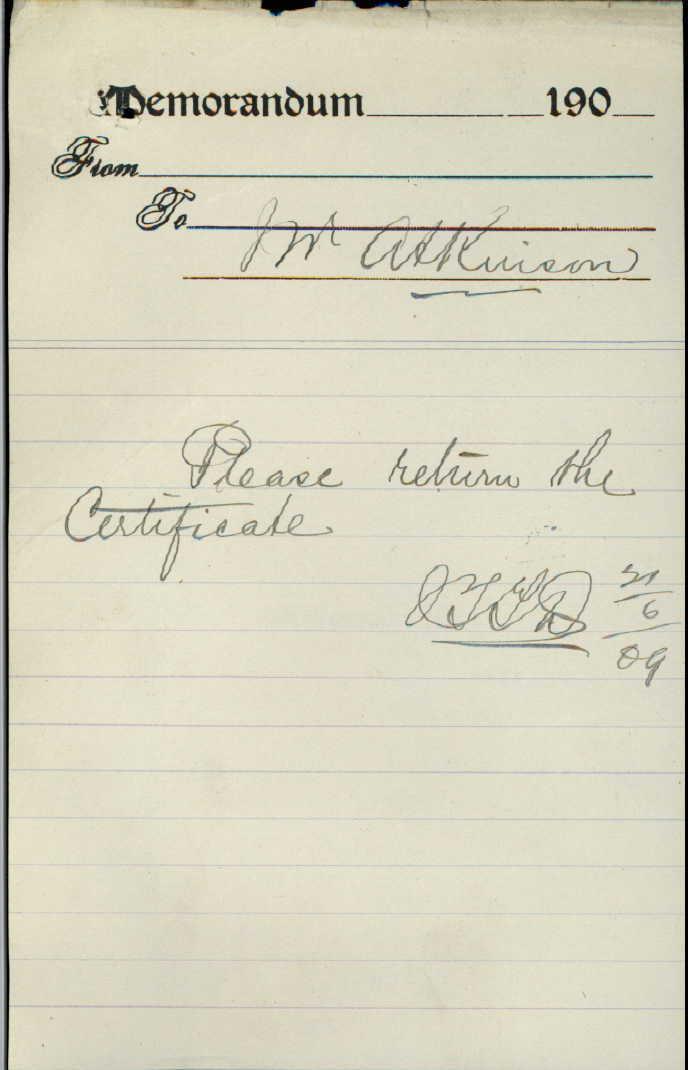 Memorandum 190
From
To
Mr Atkinson
Please return the
Certificate
6
09